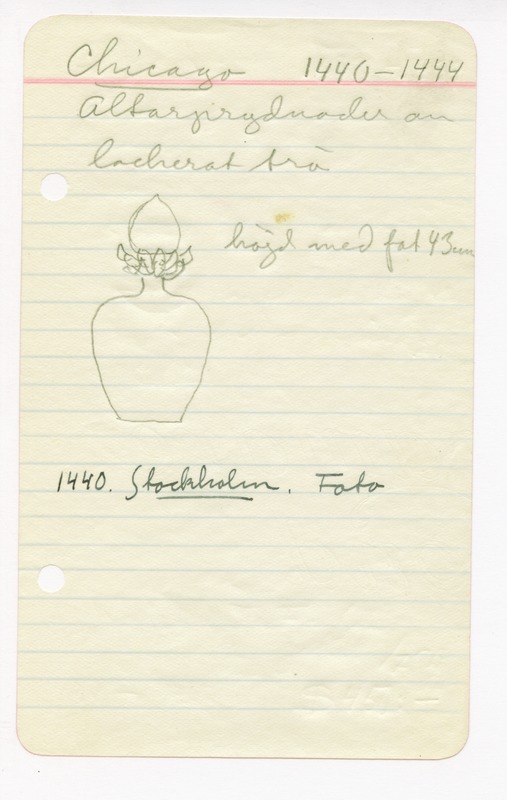 Chicago 1440-1444
Altarprydnader av
lackerat trä
höjd med fot 43 cm
1440. Stockholm. Foto